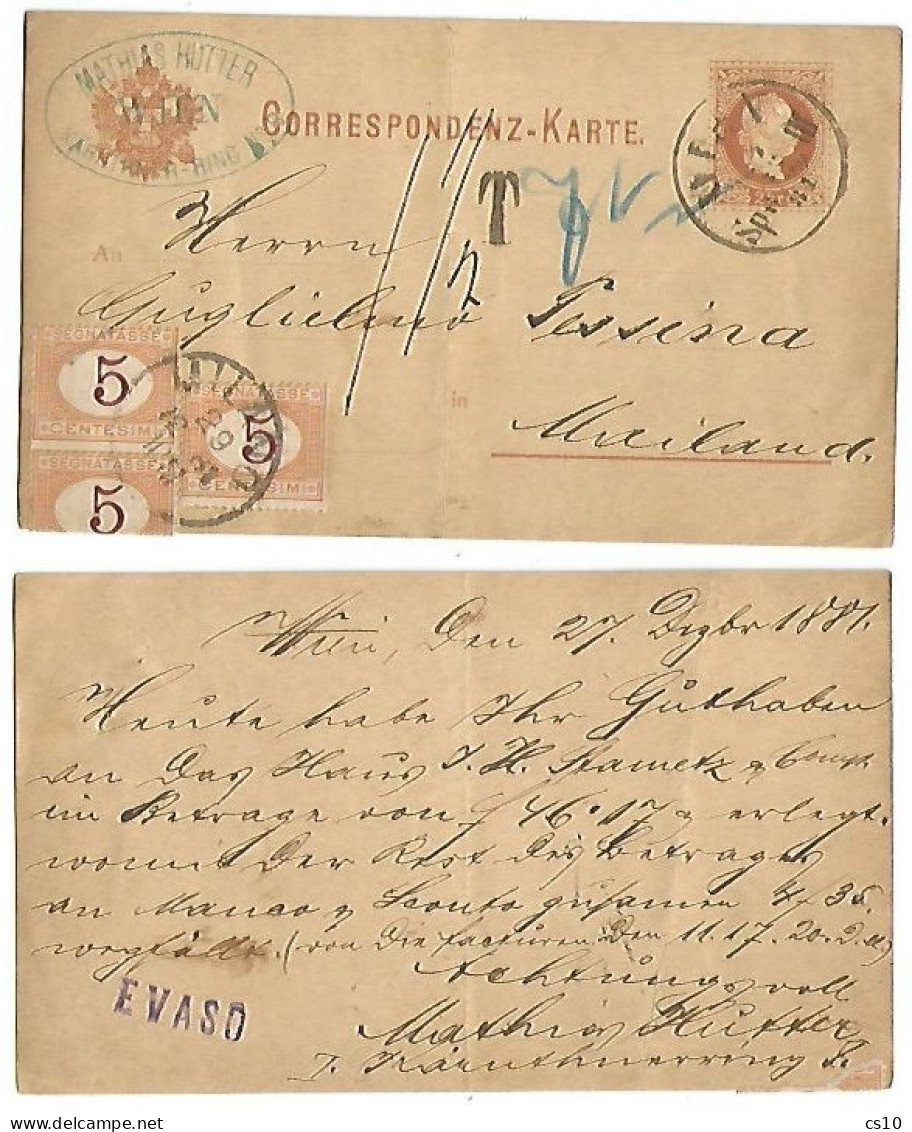 MATHIAS HUTTER
WIEN
KÄRNTHNER-RING No 8
CORRESPONDENZ-KARTE.
T
An
Herrn
Guglielmo Tessina
in
Mailand.
SEGNATASSE
5
CENTESIMI
SEGNATASSE
5
CENTESIMI
SEGNATASSE
5
MILANO
Wien, den 27. Dezbr 1881.
Heute habe Ihr Guthaben
an das Haus J. H. Stametz & Comp
im Betrage von f 46.17 erlegt.
womit der Rest des Betrages
an Manco & Sconto zusamen f 35.
wegfällt. (von die facturen den 11. 17. 20. 2.
Achtungsvoll
Mathias Hutter
I. Kärnthnerring 8.
EVASO
cs10